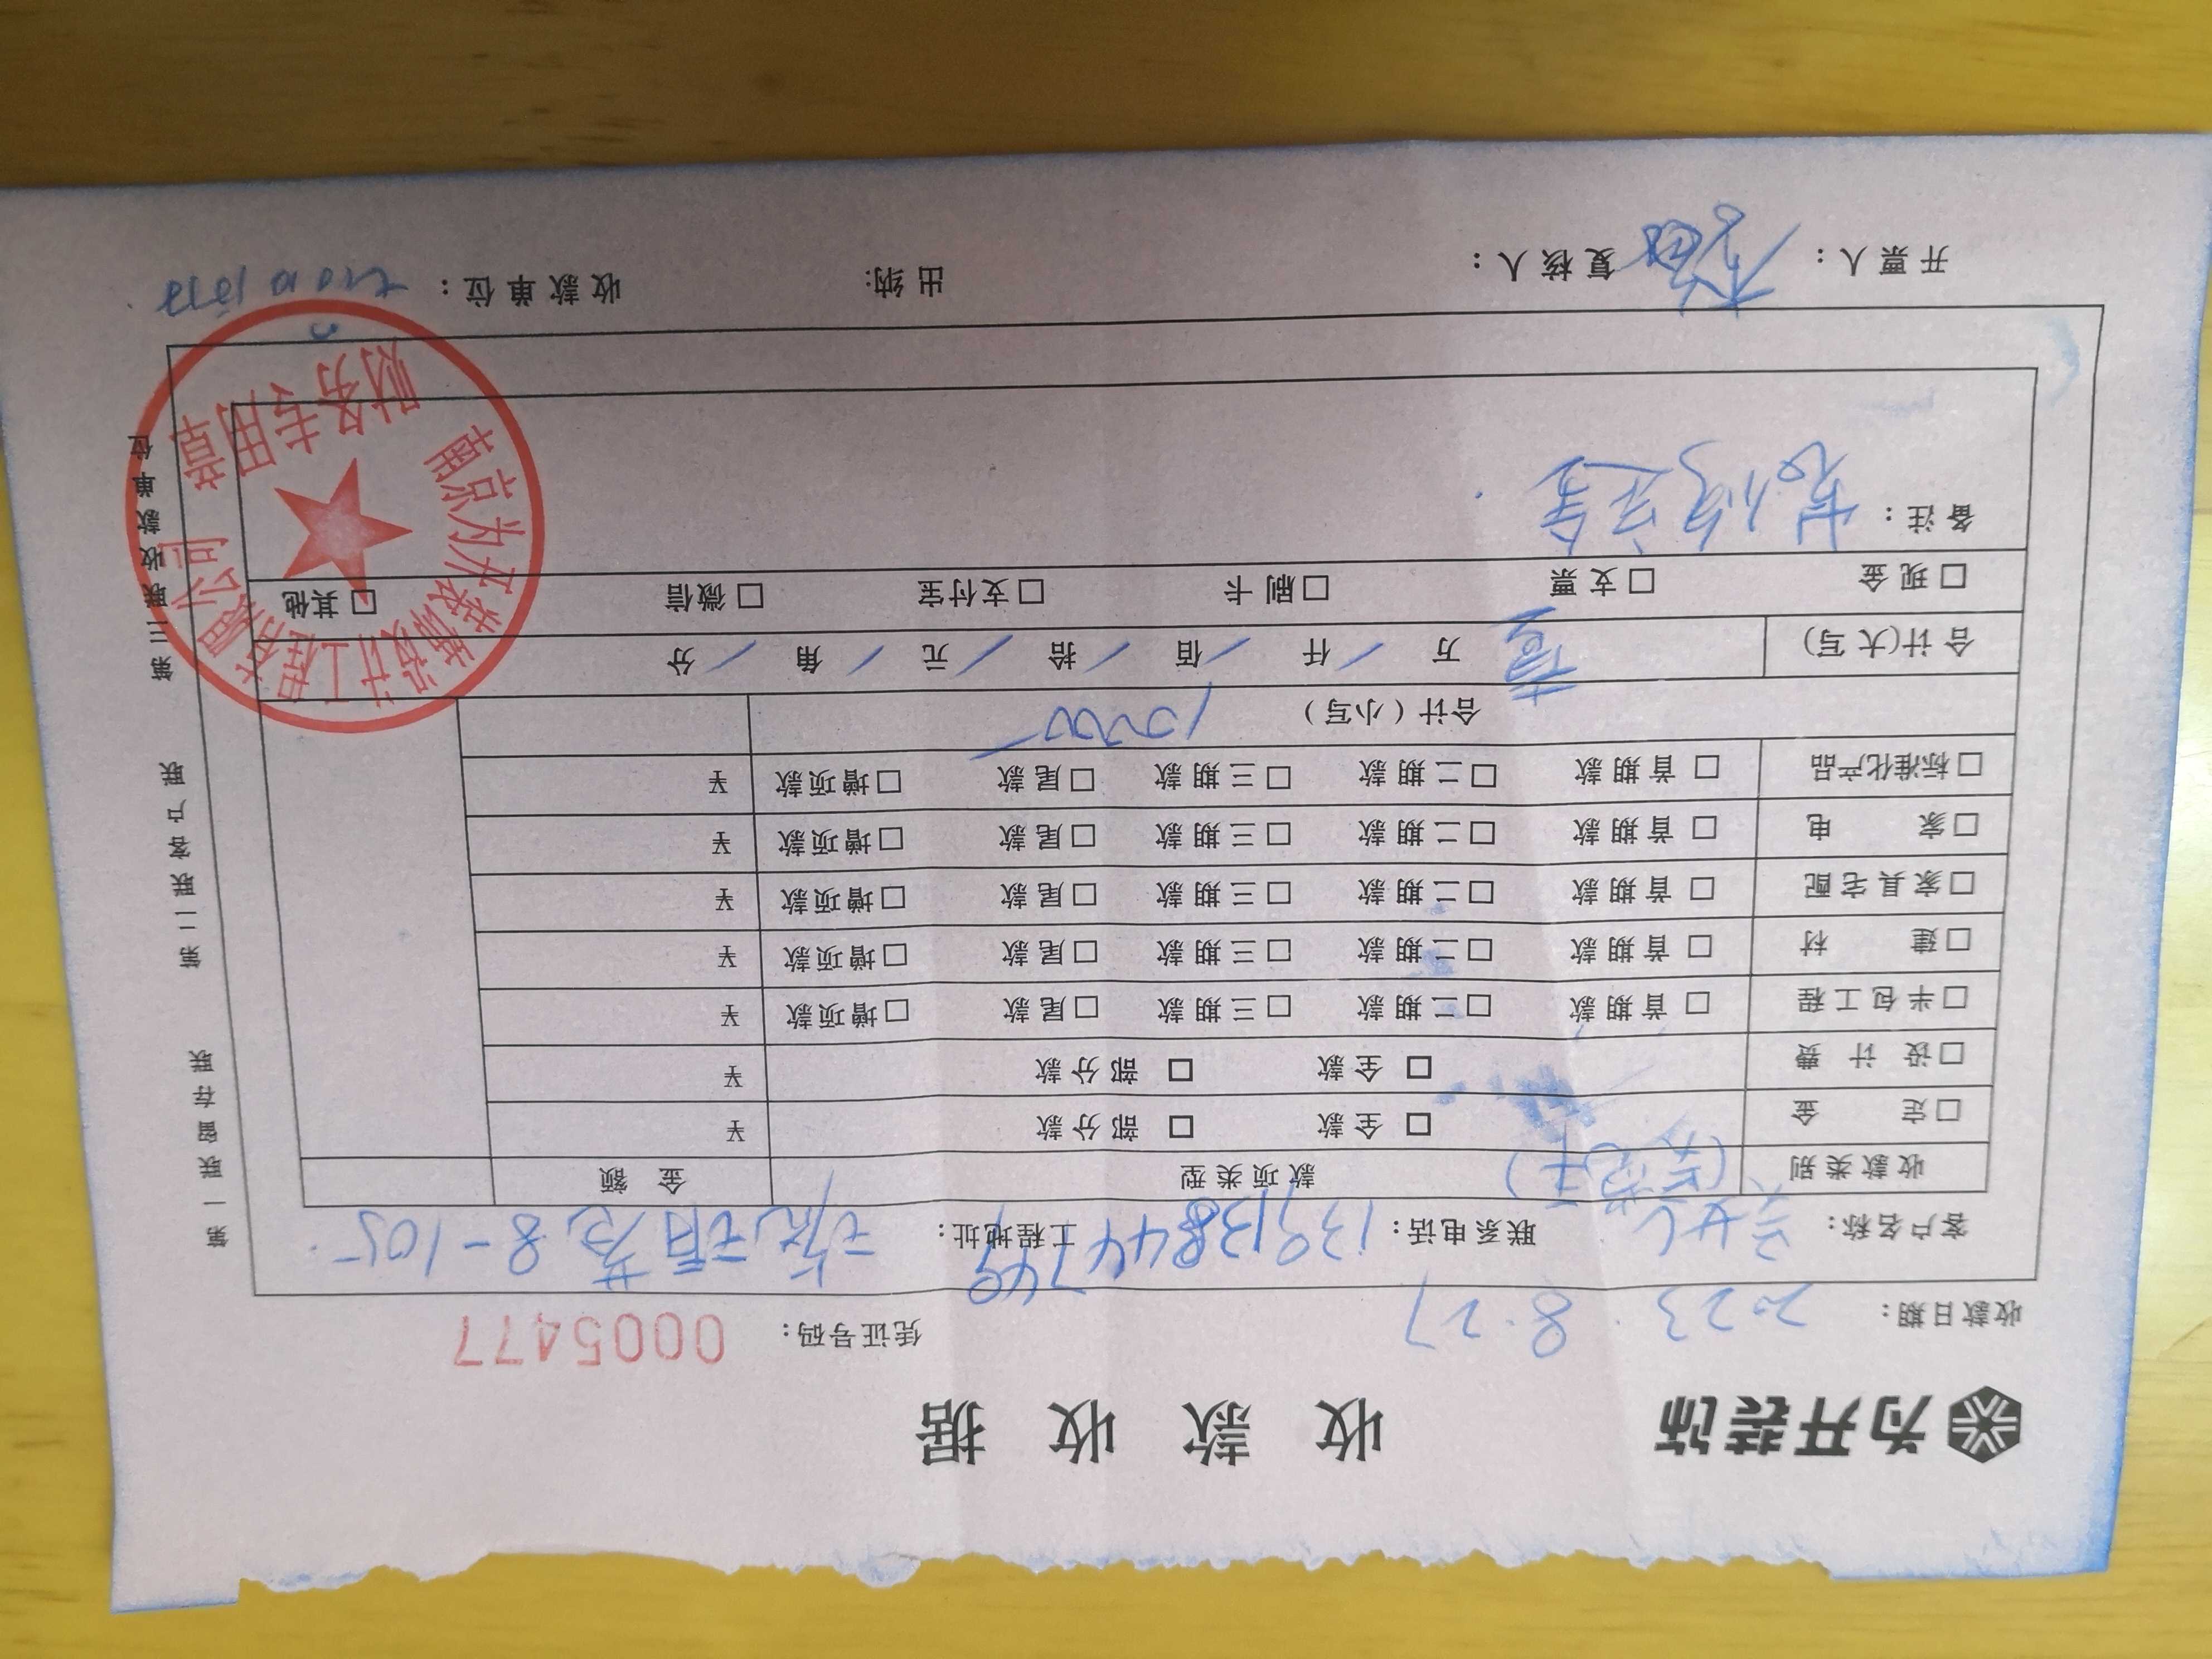 为开装饰
收款收据
收款日期: 2023.8.27 凭证号码: 0005477
客户名称: 联系电话: 13913844749 工程地址: 8-105
收款类别 款项类型 金额
□定金 □全款 □部分款 ¥
□设计费 □全款 □部分款 ¥
□半包工程 □首期款 □二期款 □三期款 □尾款 □增项款 ¥
□建材 □首期款 □二期款 □三期款 □尾款 □增项款 ¥
□家具宅配 □首期款 □二期款 □三期款 □尾款 □增项款 ¥
□家电 □首期款 □二期款 □三期款 □尾款 □增项款 ¥
□标准化产品 □首期款 □二期款 □三期款 □尾款 □增项款 ¥
合计(小写) 10000
合计(大写) 壹万 / 仟 / 佰 / 拾 / 元 / 角 / 分
□现金 □支票 □刷卡 □支付宝 □微信 □其他
备注: 装修定金.
开票人: 复核人: 出纳: 收款单位:
第一联留存联 第二联客户联 第三联收款单位
南京为开装饰设计工程有限公司
财务专用章